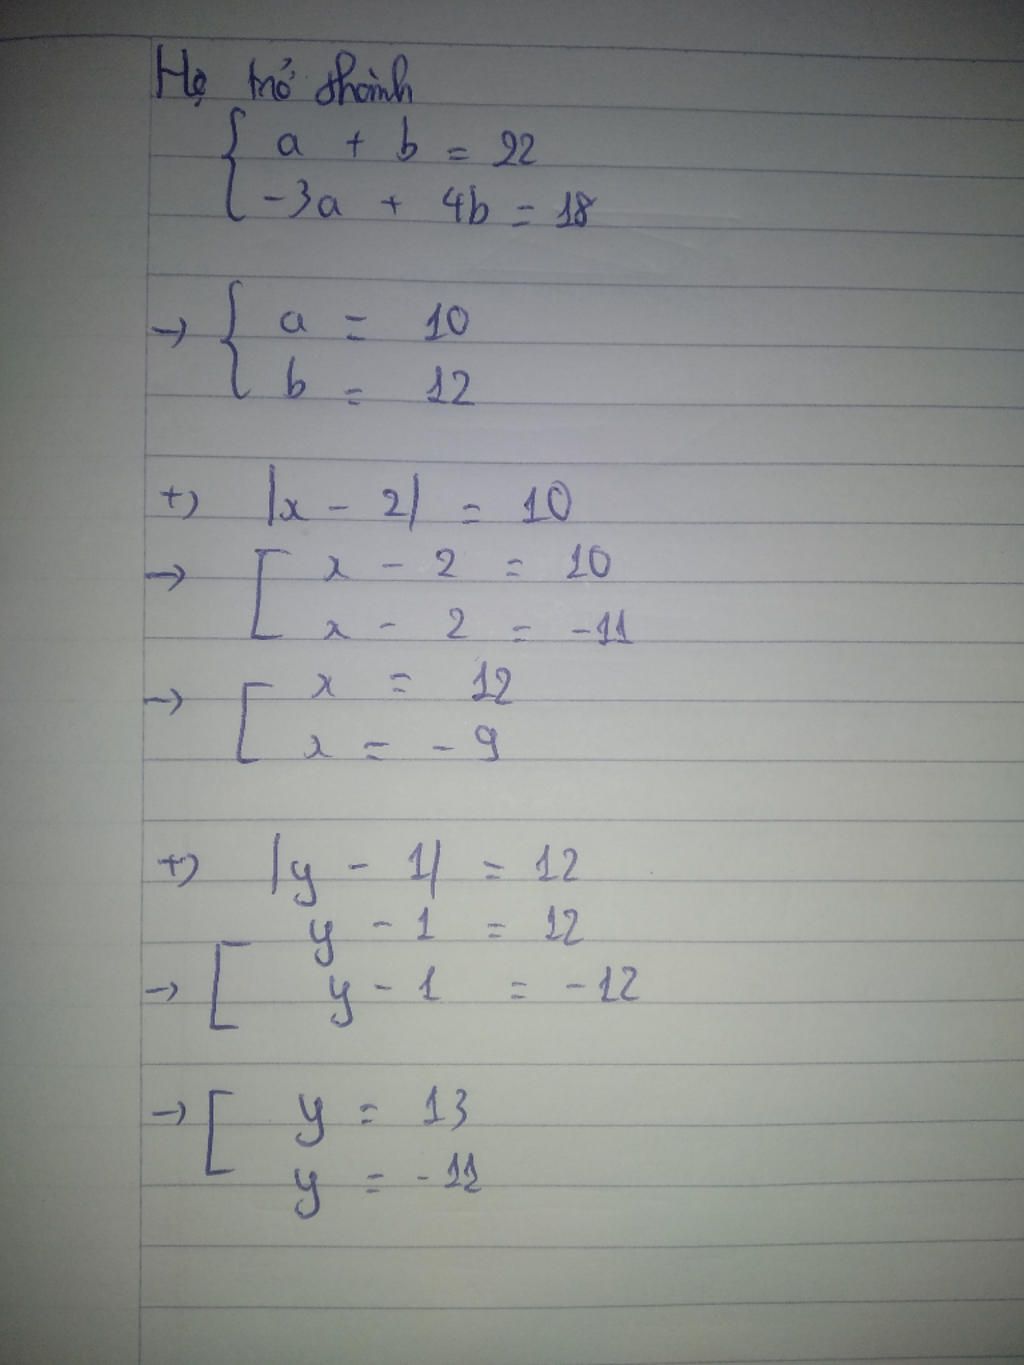 Hệ trở thành
{ a + b = 22
-3a + 4b = 18
→ { a = 10
b = 12
+) |x - 2| = 10
→ [ x - 2 = 10
x - 2 = -11
→ [ x = 12
x = - 9
+) |y - 1| = 12
y - 1 = 12
→ [ y - 1 = -12
→ [ y = 13
y = -11